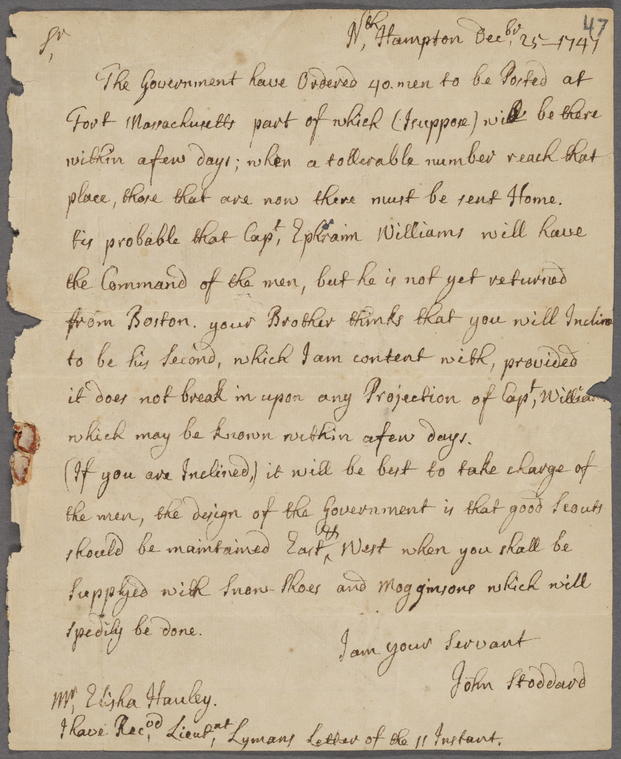 47
Sr, Nth, Hampton Decbr, 25 - 1747
The Government have Ordered 40. men to be Posted at
Fort Massachusetts part of which (I suppose) will be there
within a few days; when a tollerable number reach that
place, those that are now there must be sent Home.
tis probable that Capt, Ephraim Williams will have
the Command of the men, but he is not yet returned
from Boston. your Brother thinks that you will Incline
to be his Second, which I am content with, provided
it does not break in upon any Projection of Capt, Williams
which may be known within a few days.
(If you are Inclined,) it will be best to take charge of
the men, the design of the Government is that good Scouts
should be maintained East, & West when you shall be
Supplyed with Snow-Shoes and Mogginsons which will
Spedily be done.
I am your Servant
John Stoddard
Mr, Elisha Hauley.
I have Recod, Lieutnt, Lymans Letter of the 11 Instant.